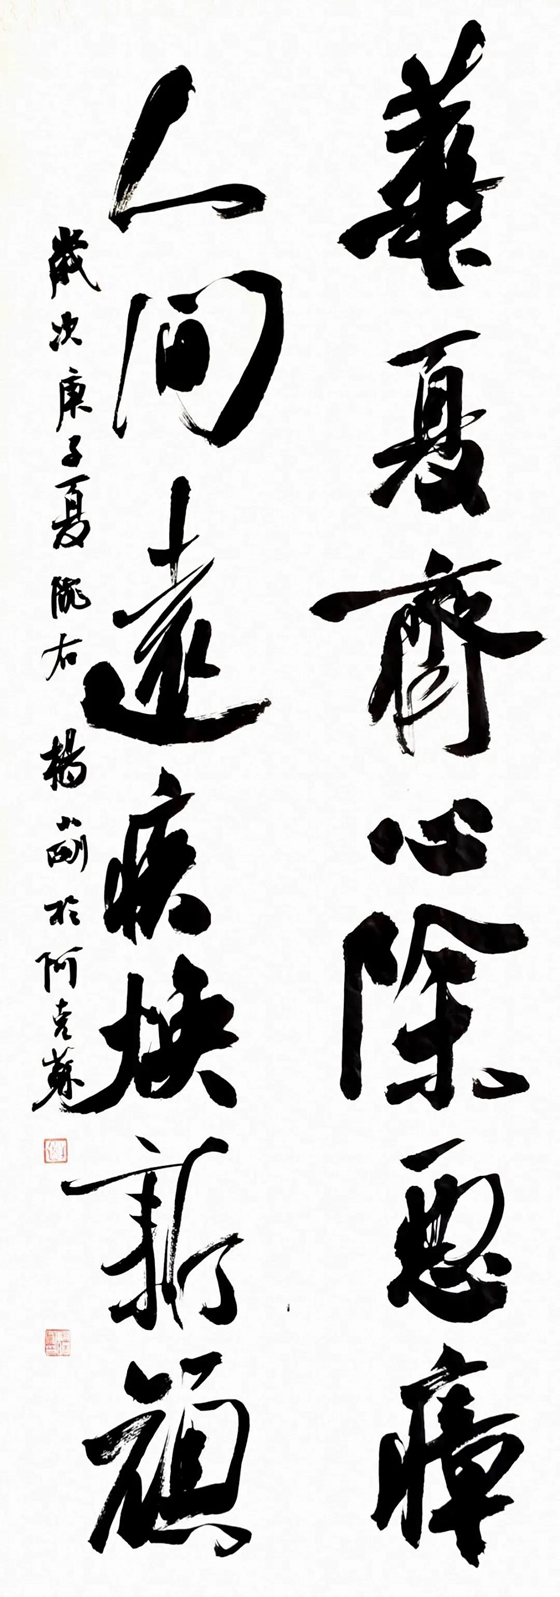 華夏齊心除惡瘴
人间遠疾换新顏
歲次庚子夏隴右楊小剛於阿克蘇